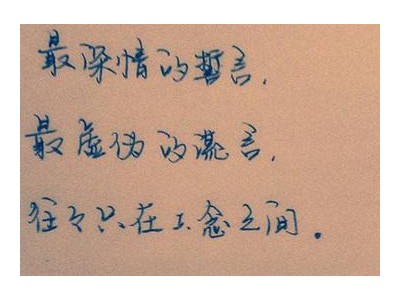 最深情的誓言,
最虚伪的谎言,
往々只在一念之间。